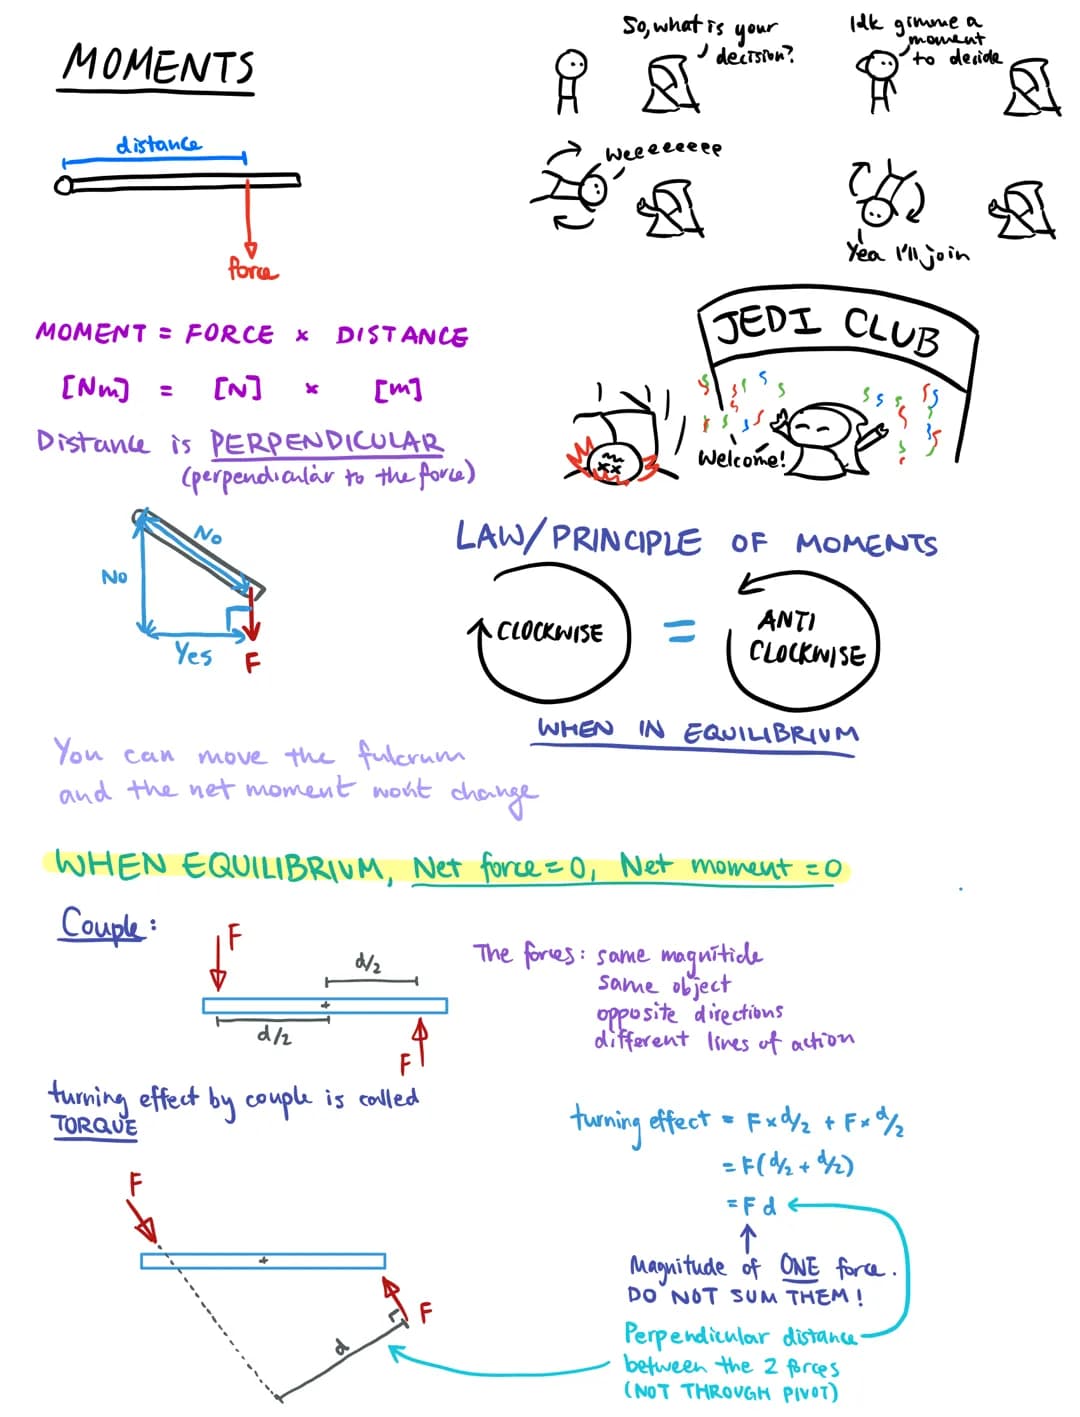 MOMENTS
So, what is your
decision?
Idk gimme a
moment
to decide
Weeeeeeee
Yea I'll join
distance
force
JEDI CLUB
Welcome!
MOMENT = FORCE × DISTANCE
[Nm] = [N] × [m]
Distance is PERPENDICULAR
(perpendicular to the force)
No
No
Yes
F
LAW/PRINCIPLE OF MOMENTS
CLOCKWISE
=
ANTI
CLOCKWISE
WHEN IN EQUILIBRIUM
You can move the fulcrum
and the net moment won't change
WHEN EQUILIBRIUM, Net force = 0, Net moment = 0
Couple:
F
d/2
d/2
F
The forces: same magnitide
same object
opposite directions
different lines of action
turning effect by couple is called
TORQUE
turning effect = F × d/2 + F × d/2
= F(d/2 + d/2)
= F d
Magnitude of ONE force.
DO NOT SUM THEM!
Perpendicular distance
between the 2 forces
(NOT THROUGH PIVOT)
F
F
d